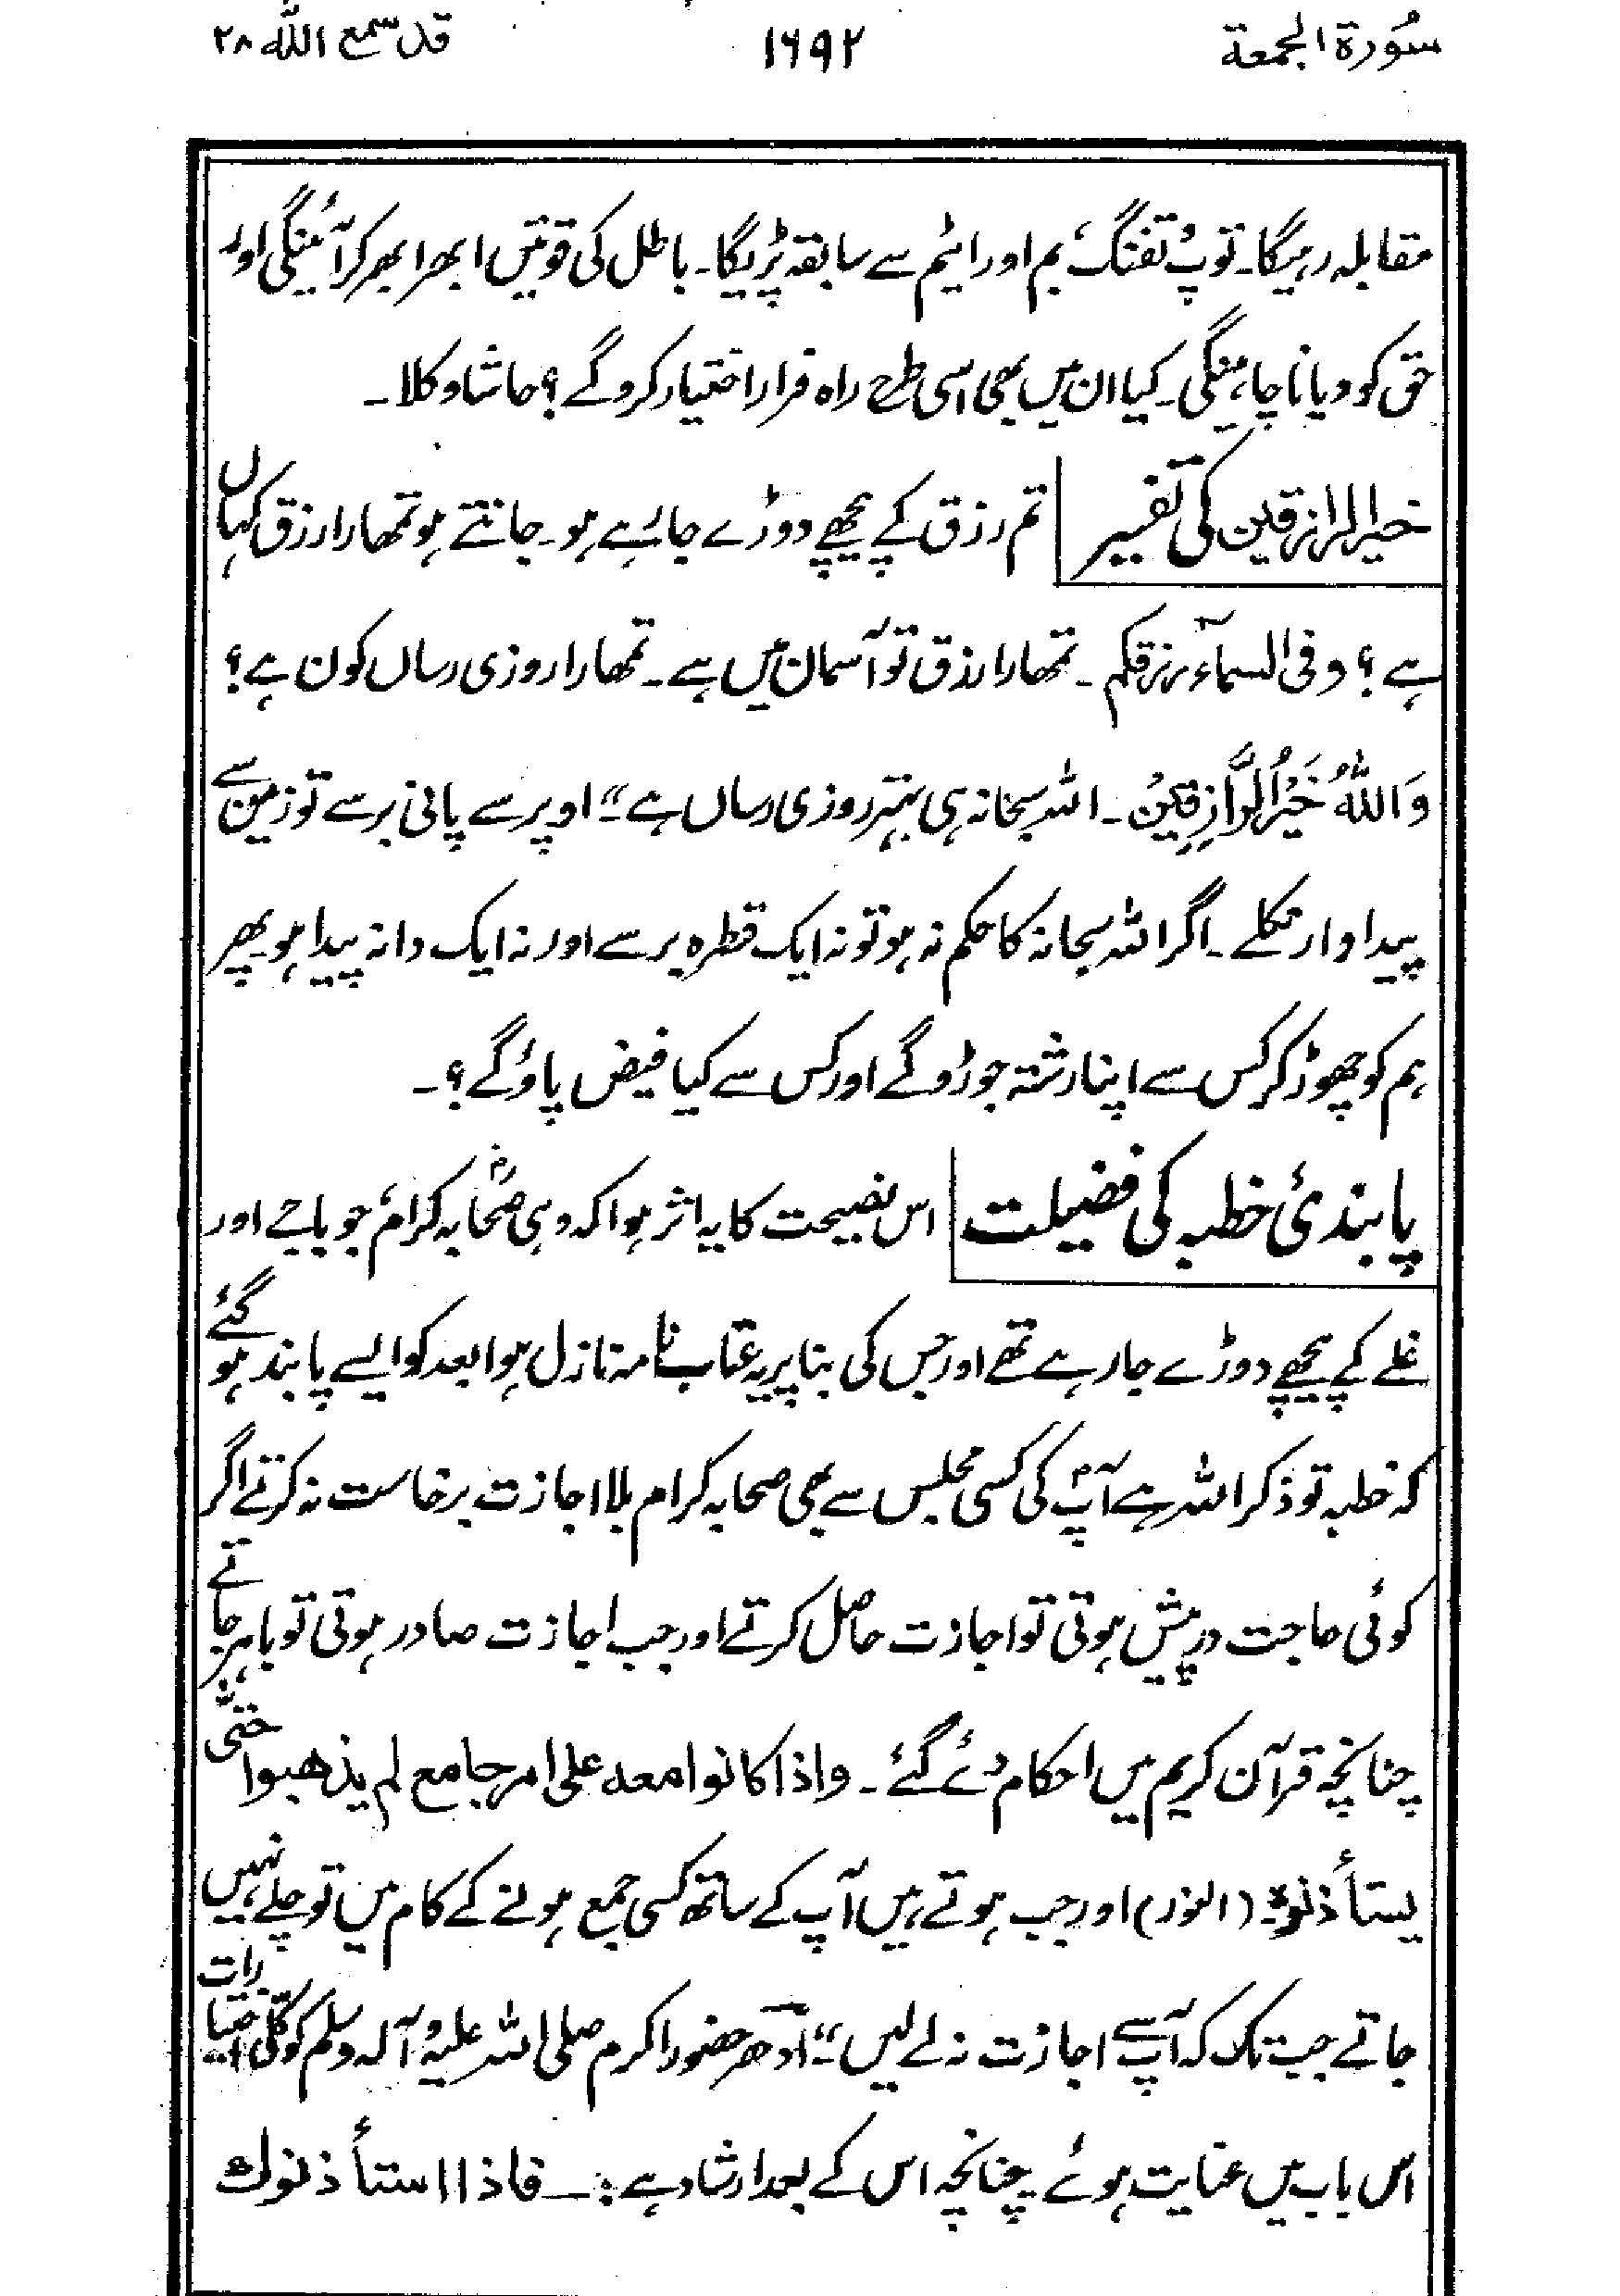 سُورة الجمعة ۱۶۹۲ قد سمع اللہ ۲۸
مقابلہ رہیگا۔ توپ تفنگ، بم اور ایٹم سے سابقہ پڑیگا۔ باطل کی قوتیں ابھر ابھر کر آئینگی اور
حق کو دبانا چاہینگی۔ کیا ان میں بھی اسی طرح راہ فرار اختیار کرو گے؟ حاشا وکلا۔
خیر الرازقین کی تفسیر تم رزق کے پیچھے دوڑے جارہے ہو۔ جانتے ہو تمھارا رزق کہاں
ہے؟ وفی السمآء رزقکم۔ تمھارا رزق تو آسمان میں ہے۔ تمھارا روزی رساں کون ہے؟
وَاللہُ خَیْرُ الرَّازِقِیْن۔ اللہ سبحانہ ہی بہتر روزی رساں ہے“۔ اوپر سے پانی برسے تو زمین سے
پیداوار نکلے۔ اگر اللہ سبحانہ کا حکم نہ ہو تو نہ ایک قطرہ برسے اور نہ ایک دانہ پیدا ہو۔ پھر
ہم کو چھوڑ کر کس سے اپنا رشتہ جوڑو گے اور کس سے کیا فیض پاؤ گے؟۔
پابندیٔ خطبہ کی فضیلت اس نصیحت کا یہ اثر ہوا کہ وہی صحابہ کرامؓ جو باجے اور
غلے کے پیچھے دوڑے جارہے تھے اور جس کی بنا پر یہ عتاب نامہ نازل ہوا بعد کو ایسے پابند ہو گئے
کہ خطبہ تو ذکر اللہ ہے آپؐ کی کسی مجلس سے بھی صحابہ کرام بلا اجازت برخاست نہ کرتے اگر
کوئی حاجت درپیش ہوتی تو اجازت حاصل کرتے اور جب اجازت صادر ہوتی تو باہر جاتے
چنانچہ قرآن کریم میں احکام دئے گئے۔ واذا کانوا معہ علی امر جامع لم یذھبوا حتّٰی
یستأذنوہ۔ (النور) اور جب ہوتے ہیں آپ کے ساتھ کسی جمع ہونے کے کام میں تو چلے نہیں
جاتے جب تک کہ آپ سے اجازت نہ لے لیں“۔ اُدھر حضور اکرم صلی اللہ علیہ وآلہ وسلم کو کلّی اختیارات
اس باب میں عنایت ہوئے چنانچہ اس کے بعد ارشاد ہے:۔ فاذا استأذنوك